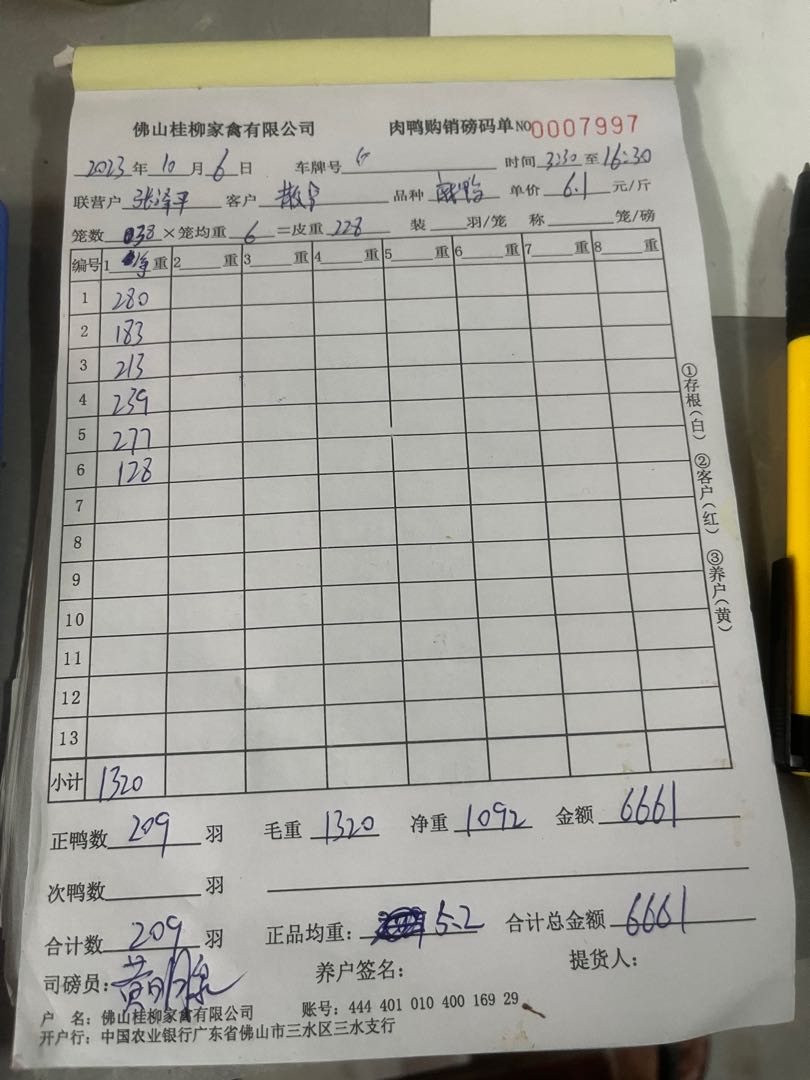 佛山桂柳家禽有限公司 肉鸭购销磅码单 NO 0007997
2023 年 10 月 6 日 车牌号 时间 至 16:30
联营户 张泽平 客户 散户 品种 单价 6.1 元/斤
笼数 38 ×笼均重 6 =皮重 228 装 羽/笼 称 笼/磅
编号 1 净重 2 重 3 重 4 重 5 重 6 重 7 重 8 重
1 280
2 183
3 213
4 239
5 277
6 128
7
8
9
10
11
12
13
小计 1320
①存根(白) ②客户(红) ③养户(黄)
正鸭数 209 羽 毛重 1320 净重 1092 金额 6661
次鸭数 羽
合计数 209 羽 正品均重: 5.2 合计总金额 6661
司磅员: 养户签名: 提货人:
户 名: 佛山桂柳家禽有限公司 账号: 444 401 010 400 169 29
开户行: 中国农业银行广东省佛山市三水区三水支行